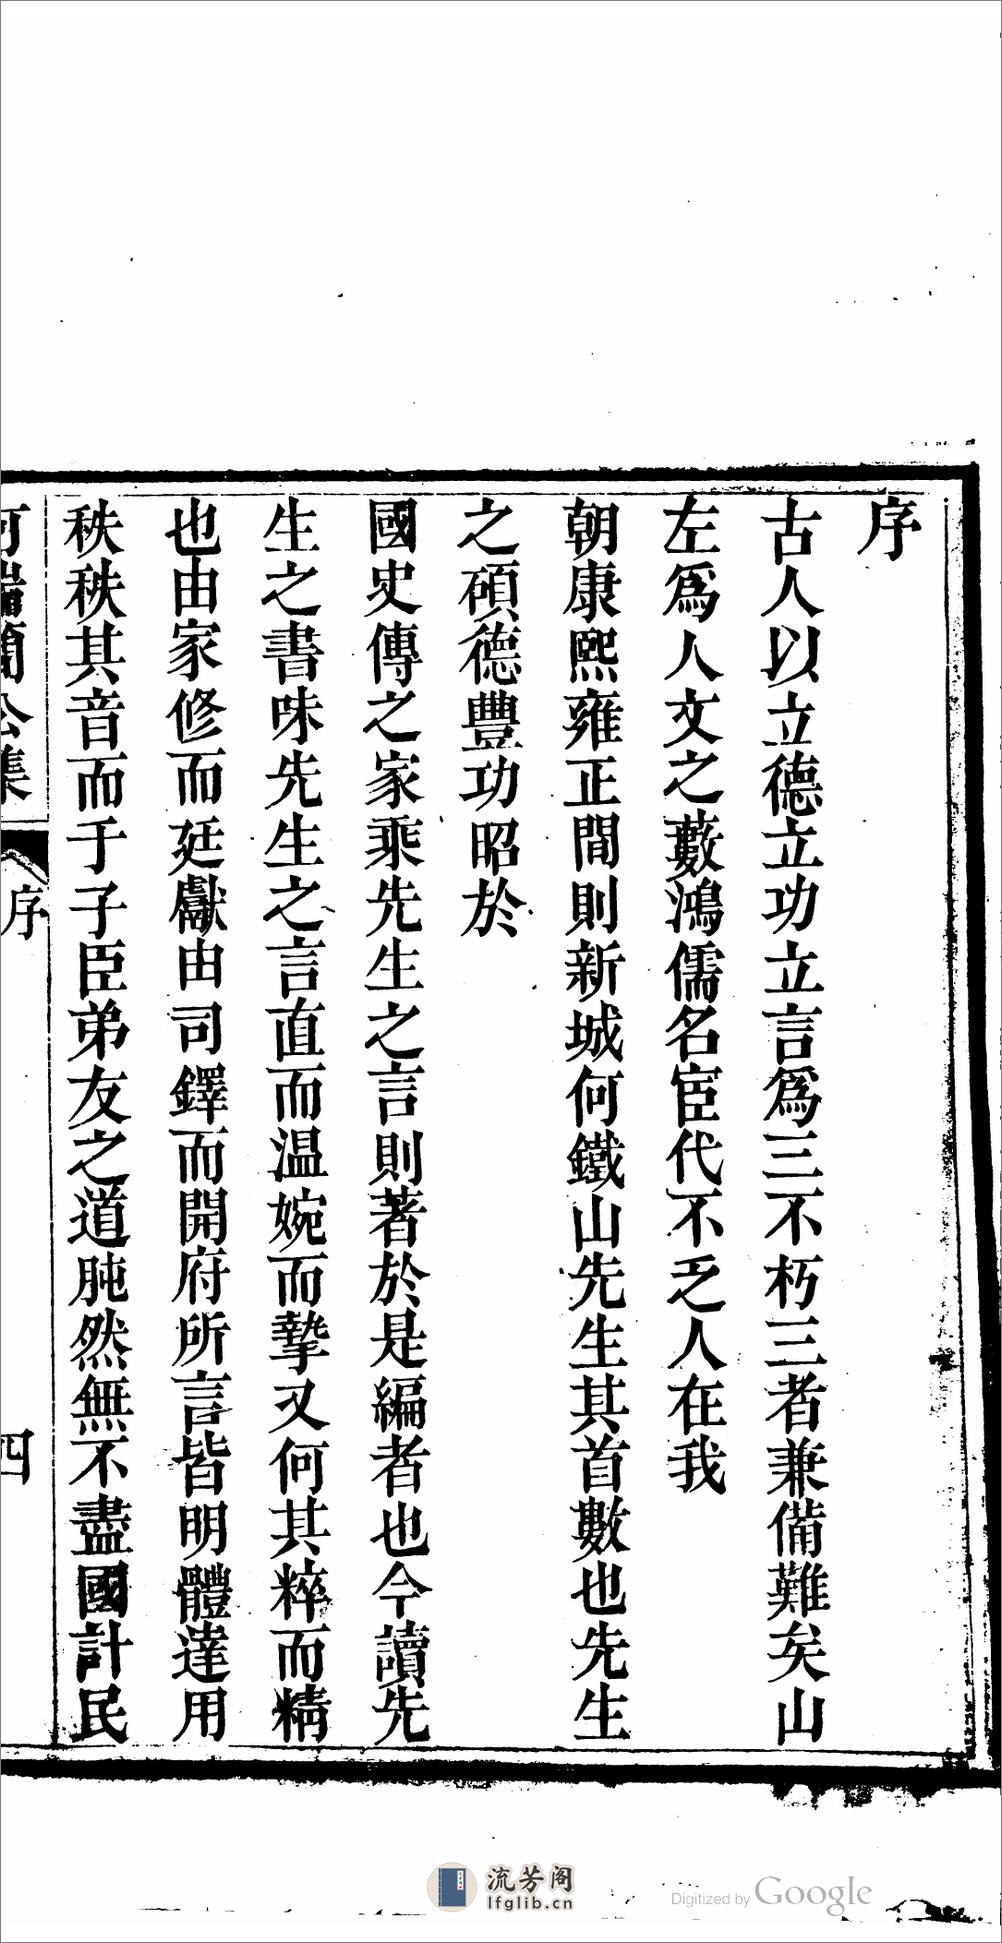 序
古人以立德立功立言爲三不朽三者兼備難矣山
左爲人文之藪鴻儒名宦代不乏人在我
朝康熙雍正間則新城何鐵山先生其首數也先生
之碩德豐功昭於
國史傳之家乘先生之言則著於是編者也今讀先
生之書味先生之言直而温婉而摯又何其粹而精
也由家修而廷獻由司鐸而開府所言皆明體達用
秩秩其音而于子臣弟友之道肫然無不盡國計民
何端簡公集
序
四
流芳阁
lfglib.cn
Digitized by Google